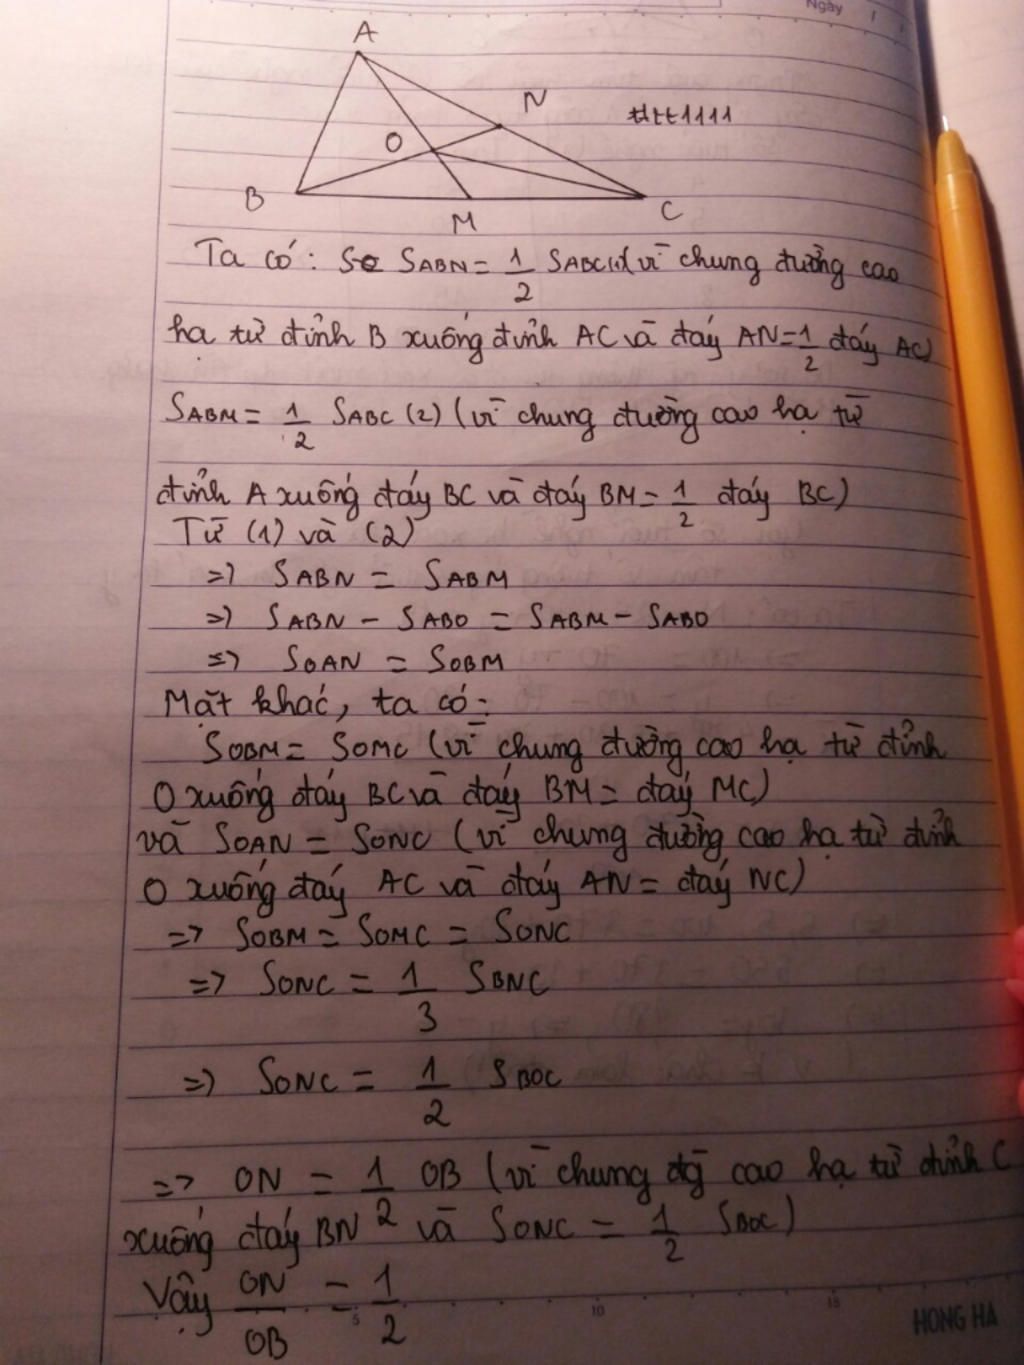 Ngày
A
N
tltt1111
O
B
M
C
Ta có: SABN = 1/2 SABC(1) (vì chung đường cao
hạ từ đỉnh B xuống đỉnh AC và đáy AN=1/2 đáy AC)
SABM = 1/2 SABC (2) (vì chung đường cao hạ từ
đỉnh A xuống đáy BC và đáy BM = 1/2 đáy BC)
Từ (1) và (2)
=> SABN = SABM
=> SABN - SABO = SABM - SABO
=> SOAN = SOBM
Mặt khác, ta có:
SOBM = SOMC (vì chung đường cao hạ từ đỉnh
O xuống đáy BC và đáy BM = đáy MC)
và SOAN = SONC (vì chung đường cao hạ từ đỉnh
O xuống đáy AC và đáy AN = đáy NC)
=> SOBM = SOMC = SONC
=> SONC = 1/3 SBNC
=> SONC = 1/2 SBOC
=> ON = 1/2 OB (vì chung đg cao hạ từ đỉnh C
xuống đáy BN và SONC = 1/2 SBOC)
Vậy ON/OB = 1/2
5 10 15
HONG HA